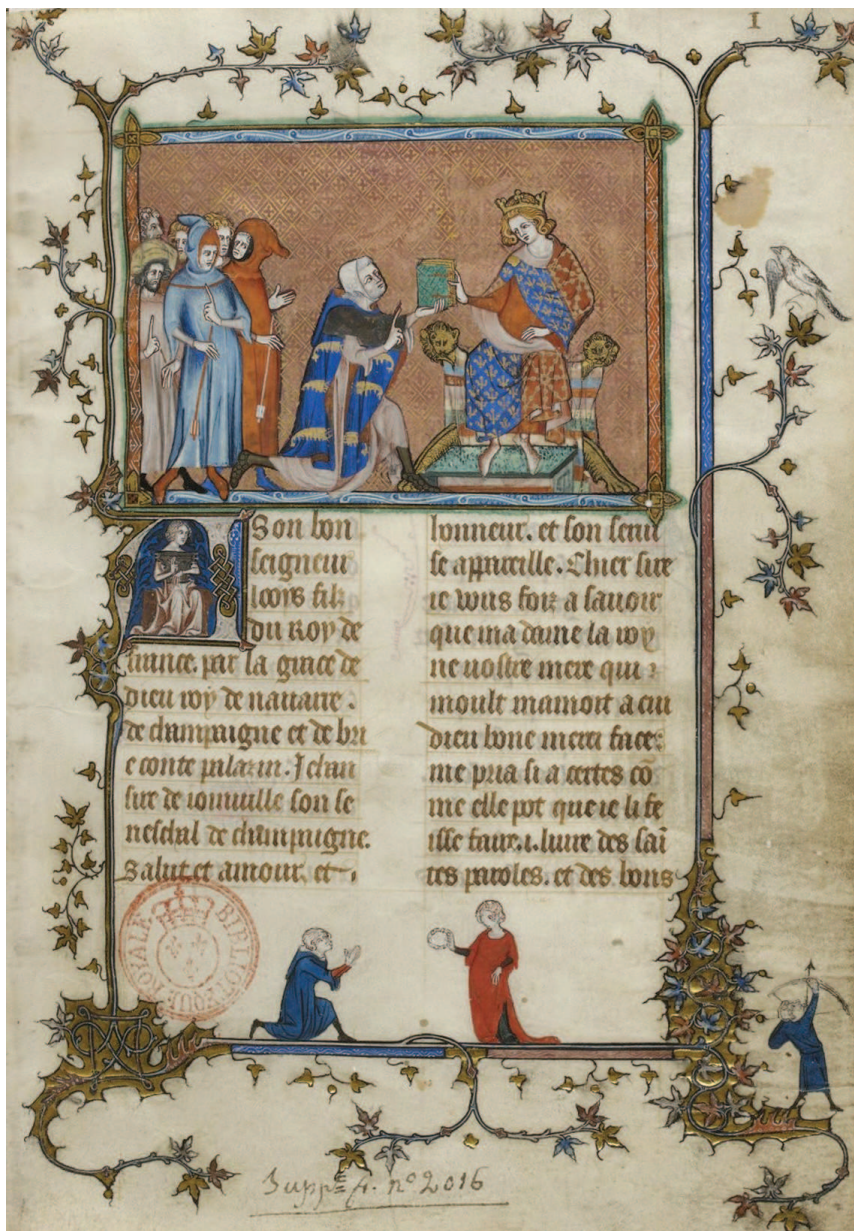 I
A Son bon
seigneur
looys filz
du roy de
france. par la grace de
dieu roy de nauarre.
de champaigne et de bri
e conte palazin. Jehan
sire de ioinuille son se
neschal de champaigne.
Salut et amour. et
honneur. et son seruise
se appareille. Chier sire
ie vous foiz a sauoir
que ma dame la roy
ne uostre mere qui
moult mamoit a cui
dieu bone merci face
me pria si a certes co
me elle pot que ie li fe
isse faire .i. liure des sai
tes paroles. et des bons
BIBLIOTHEQUE ROYALE
Supp. f. n° 2016